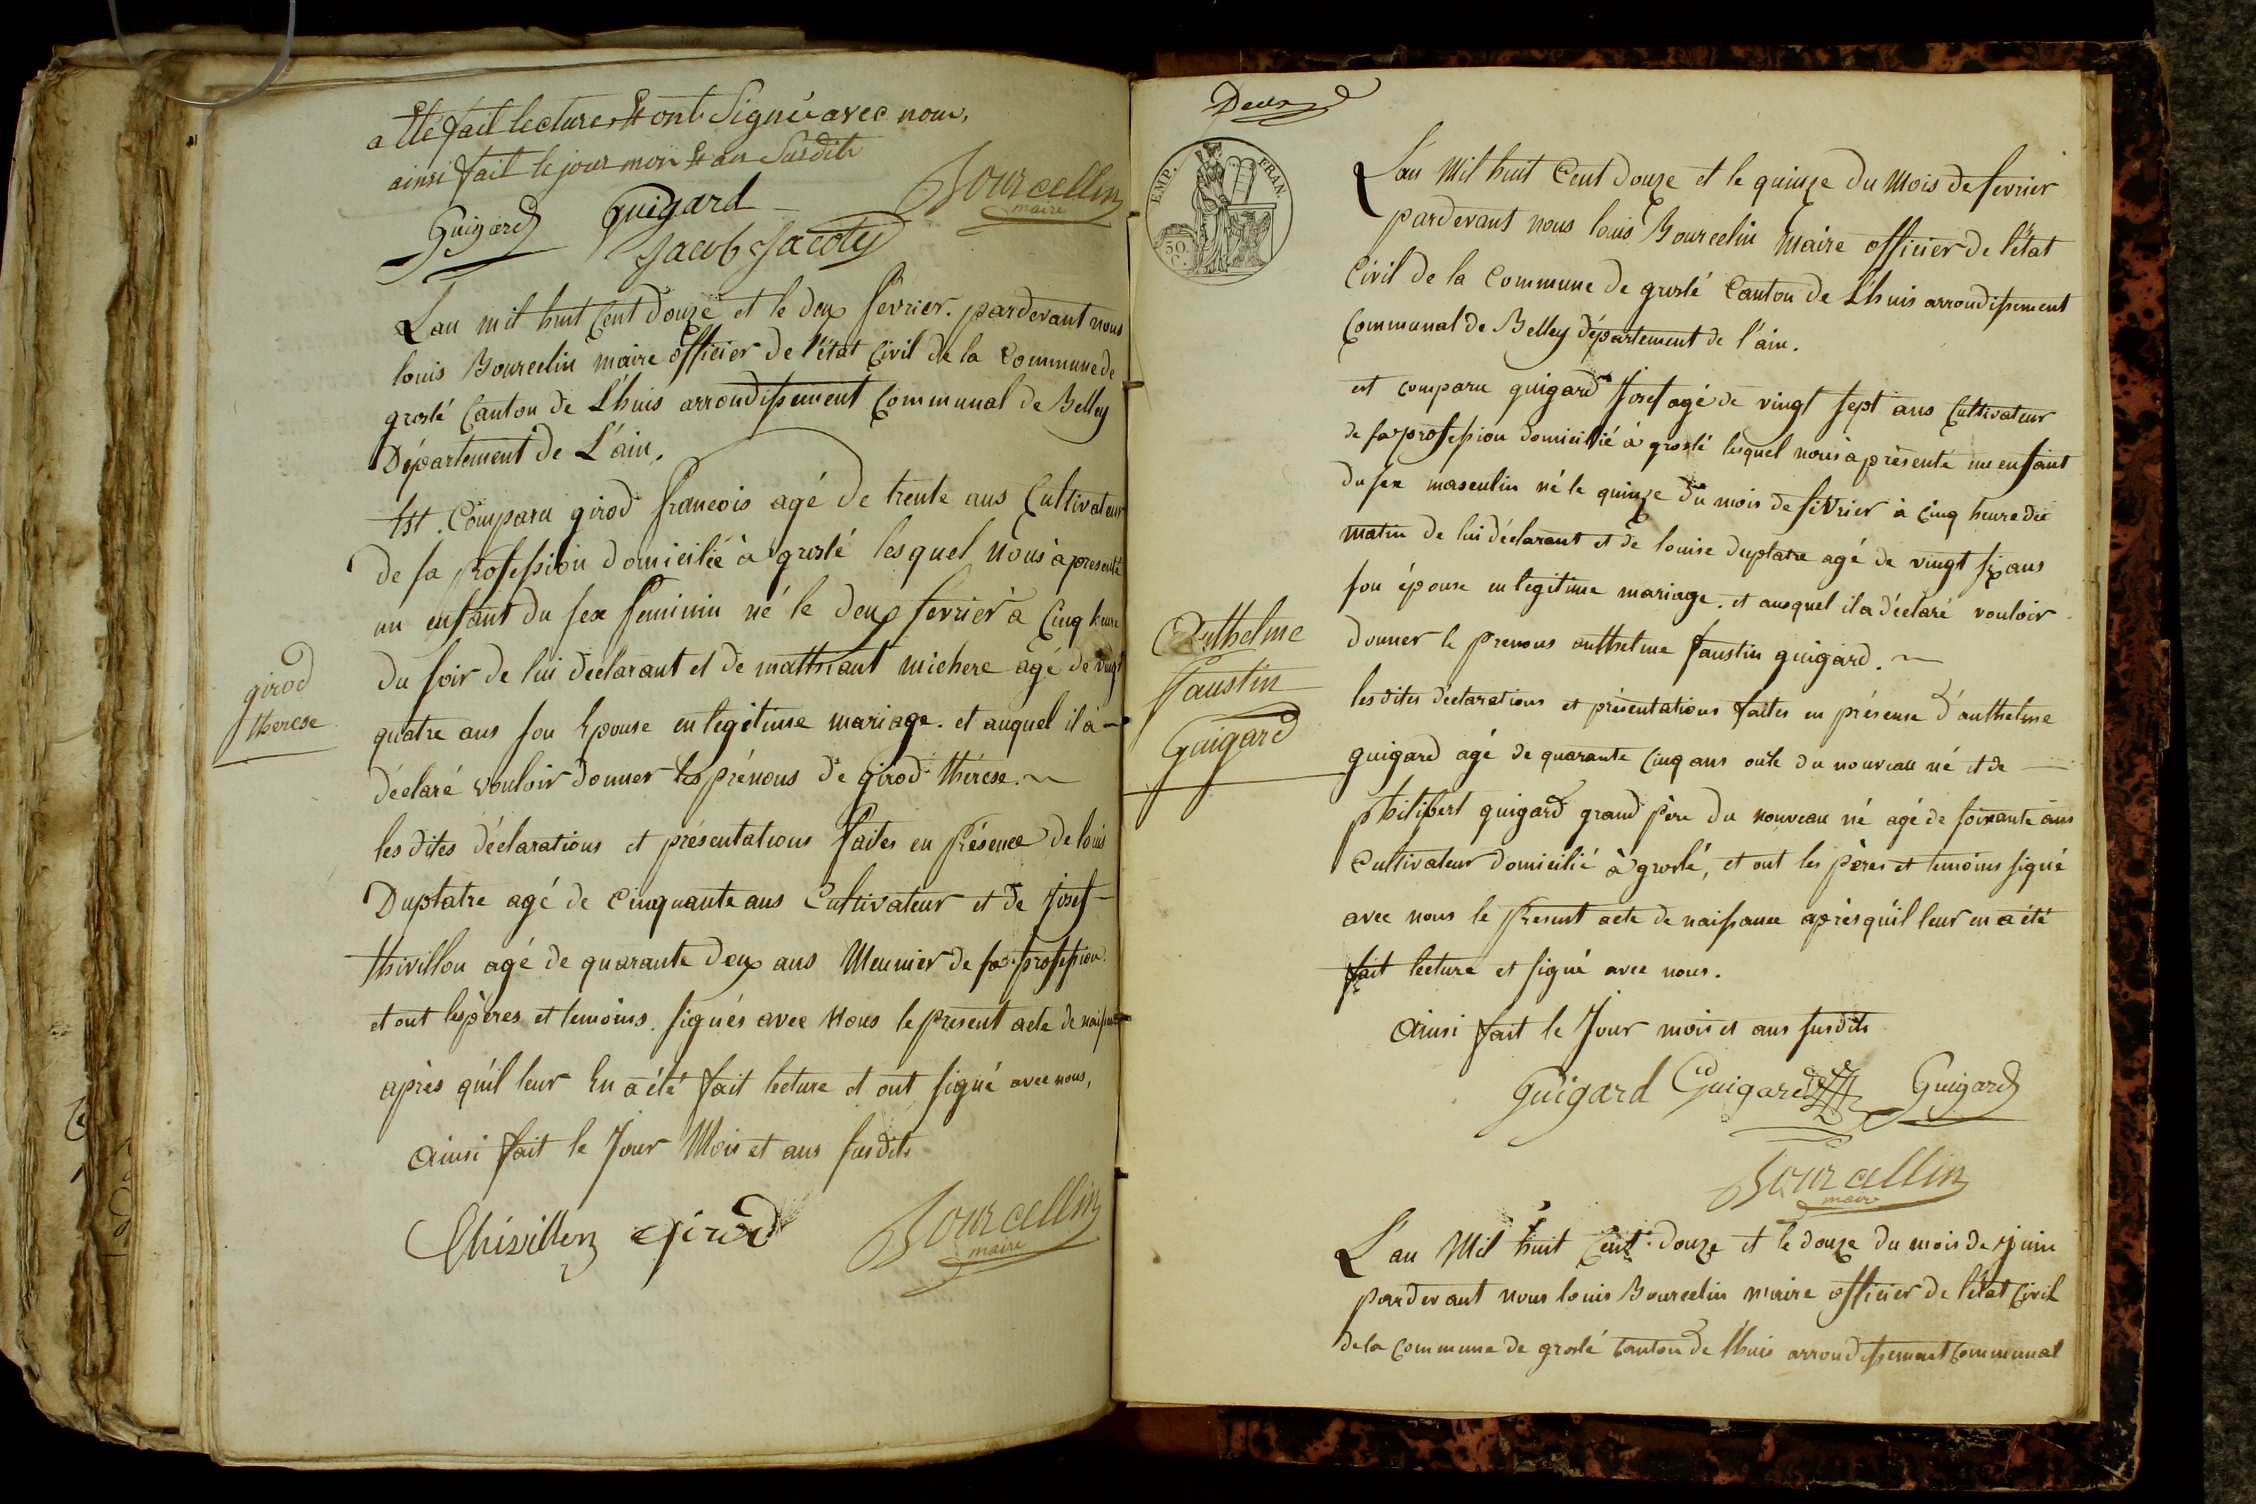 a Eté fait lecture Et ont Signé avec nous,
ainsi fait le jour mois Et an Susdits
Guigard Guigard Bourcellin
maire
Jacob Jacoty
Lan mil huit Cent douze et le deux fevrier. pardevant nous
louis Bourcelin maire officier de l'état Civil de la Commune de
groslé Canton de L'huis arrondissement Communal de Belley
Département de L'ain.
Est. Comparu girod francois agé de trente ans Cultivateur
de sa profession domiciliée à groslé lesquel nous à presenté
un enfant du sex feminin né le deux fevrier à Cinq heure
du soir de lui declarant et de matthiant michere agé de vingt
quatre ans son Epouse en legitime mariage. et auquel il à
déclaré vouloir donner les prénous de girod thérèse.
girod
therese
les dites déclarations et présentations faites en présence de louis
Duplatre agé de Cinquante ans Cultivateur et de josef
thivillon agé de quarante deux ans Meunier de sa profession
et ont les pères et temoins. signés avec nous le présent acte de naissance
après qu'il leur En a été fait lecture et ont signé avec nous,
Ainsi fait le Jour Mois et ans susdits
Thivillon girod Bourcellin
maire
Deux
EMP. FRAN.
50 C.
L'an Mil huit Cent douze et le quinze du Mois de fevrier
pardevant nous louis Bourcelin Maire officier de l'état
Civil de la Commune de groslé Canton de L'huis arrondissement
Communal de Belley département de l'ain.
est comparu guigard Josef agé de vingt sept ans Cultivateur
de sa profession domicilié à groslé lesquel nous à présenté un enfant
du sex masculin né le quinze du mois de fevrier à Cinq heure du
matin de lui déclarant et de louise duplatre agé de vingt six ans
son épouse en legitime mariage. et auquel il a déclaré vouloir
donner le prenous anthelme faustin guigard.
Anthelme
Faustin
Guigard
les dites déclarations et présentations faites en présense d'anthelme
guigard agé de quarante Cinq ans oncle du nouveau né et de
philibert guigard grand père du nouveau né agé de soixante ans
Cultivateur domicilié à groslé, et ont les pères et temoins signé
avec nous le Present acte de naissance après qu'il leur en a été
fait lecture et signé avec nous.
Ainsi fait le Jour mois et ans susdits
Guigard Guigard Guigard
Bourcellin
maire
L'an Mil huit Cent douze et le douze du mois de juin
pardevant nous louis Bourcelin maire officier de l'état Civil
de la Commune de groslé Canton de l'huis arrondissement Communal